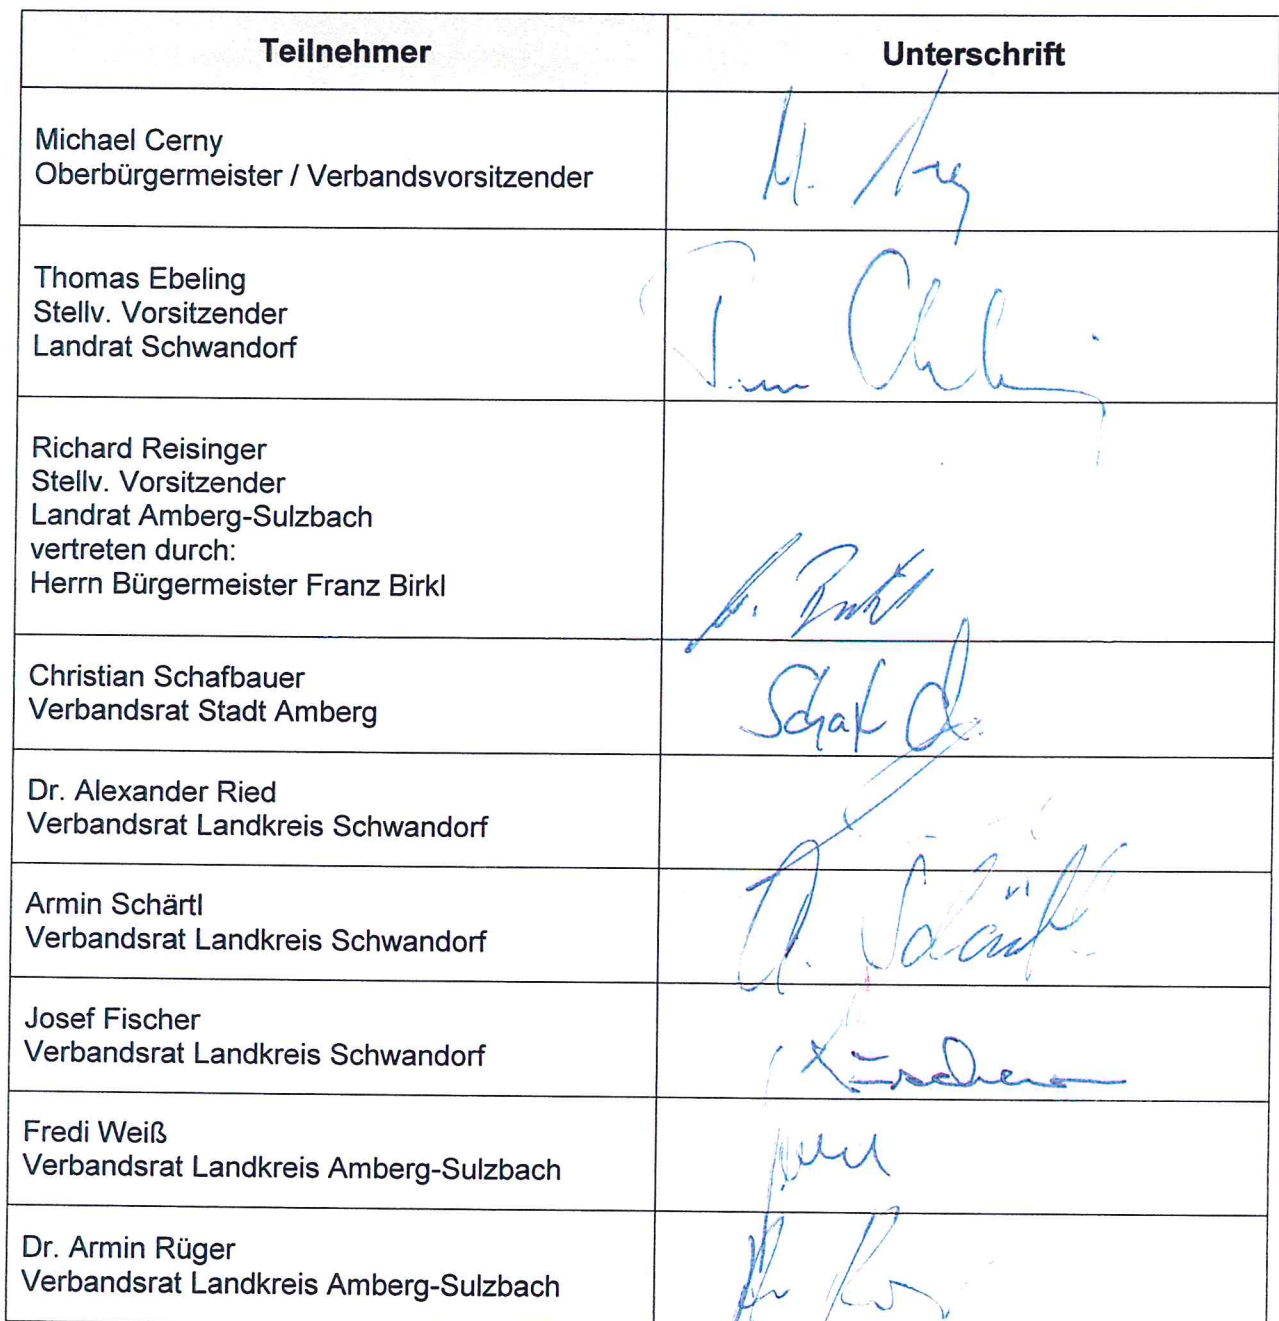 Teilnehmer Unterschrift
Michael Cerny
Oberbürgermeister / Verbandsvorsitzender
Thomas Ebeling
Stellv. Vorsitzender
Landrat Schwandorf
Richard Reisinger
Stellv. Vorsitzender
Landrat Amberg-Sulzbach
vertreten durch:
Herrn Bürgermeister Franz Birkl
Christian Schafbauer
Verbandsrat Stadt Amberg
Dr. Alexander Ried
Verbandsrat Landkreis Schwandorf
Armin Schärtl
Verbandsrat Landkreis Schwandorf
Josef Fischer
Verbandsrat Landkreis Schwandorf
Fredi Weiß
Verbandsrat Landkreis Amberg-Sulzbach
Dr. Armin Rüger
Verbandsrat Landkreis Amberg-Sulzbach